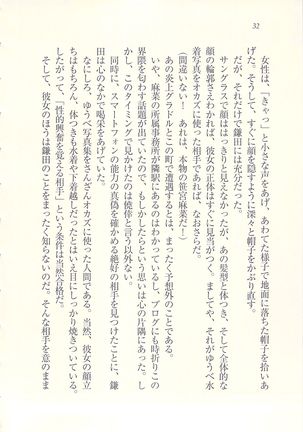 32
女性は、「きゃっ」と小さな声をあげ、あわてた様子で地面に落ちた帽子を拾いあ
げた。そうして、すぐに顔を隠すように深々と帽子をかぶり直す。
だが、それだけで鎌田には充分だった。
サングラスで顔ははっきりと見えなかったが、あの髪型と体つき、そして全体的な
顔の輪郭さえわかれば、彼女の正体はすぐに見当がつく。ましてや、それがゆうべ水
着写真をオカズに使った相手であれば、なおさらだ。
（間違いない！　あれは、本物の笹宮麻菜だ）
あの炎上グラドルとこの町で遭遇するとは、まったく予想外のことである。
麻菜の所属事務所が隣駅にあるのはわかっているし、ブログにも時折りこの
界隈を匂わす話題が出ていたので、もしかしたらという思いは心の片隅にあった。し
かし、このタイミングで見かけたのは僥倖と言う以外ない。
同時に、スマートフォンの能力の真偽を確かめる絶好の相手を見つけたことに、鎌
田は心のなかで喝采をあげていた。
なにしろ、ゆうべ写真集をさんざんオカズに使った人間である。当然、彼女の顔立
ちはもちろん、体つきも着やせや着越しだったとはいえ目にしっかり焼きついている。
したがって、「性的興奮を覚える相手」という条件は当然合格だ。
そして、彼女のほうは鎌田のことをまったく知らないのだ。そんな相手を意のまま